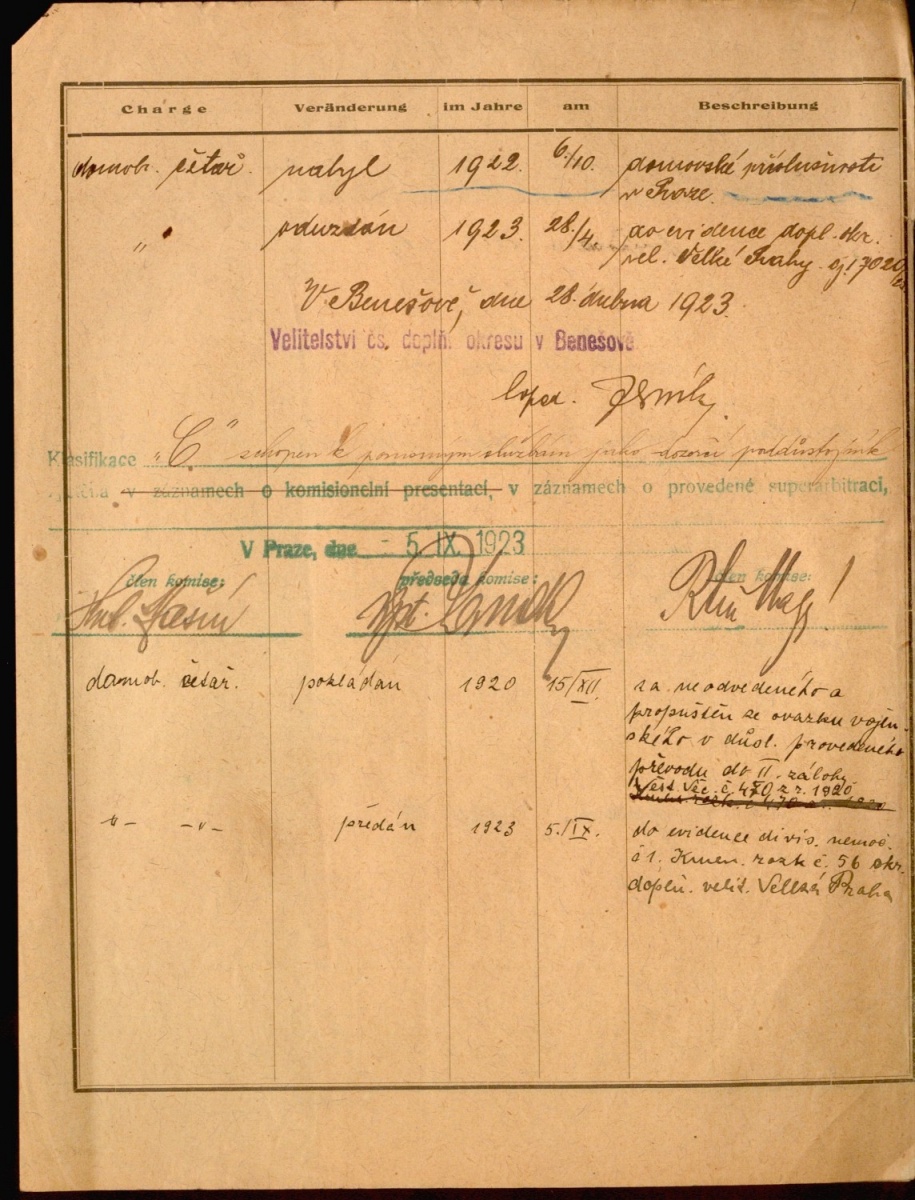 Charge Veränderung im Jahre am Beschreibung
domob. četař. nabyl 1922. 6./10. domovské příslušnosti
v Praze.
„ odvzdán 1923. 28./4. do evidence dopl. okr.
vel. Velké Prahy čj. 17020/
V Benešově, dne 28. dubna 1923.
Velitelství čs. doplň. okresu v Benešově.
Klasifikace „C.” schopen k pomocným službám jako dozorčí poddůstojník
v záznamech o komisionelní presentaci, v záznamech o provedené superarbitraci,
V Praze, dne 5. IX. 1923
člen komise: předseda komise: člen komise:
domob. četař. pokládán 1920 15/XII. za neodvedeného a
propuštěn ze svazku vojen-
ského v důsl. provedeného
převodu do II. zálohy
Věst. Věc. č. 470 z r. 1920.
„– –„– předán 1923 5./IX. do evidence divis. nemoc.
č 1. Kmen. rozk č. 56 okr.
doplň. velit. Velká Praha